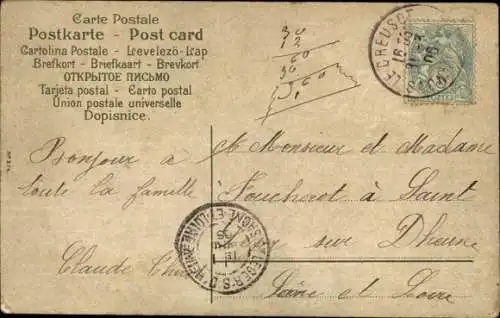 Carte Postale
Postkarte - Post card
Cartolina Postale - Levelező-Lap
Brefkort - Briefkaart - Brevkort
ОТКРЫТОЕ ПИСЬМО
Tarjeta postal - Carto postal
Union postale universelle
Dopisnice.
30
12
60
30
3,60
LE CREUSOT
Bonjour à
toute la famille
Claude
Monsieur et Madame
Foucherot à Saint
sur Dheune
Saône et Loire
ST LEGER S. DHEUNE
SAONE-ET-LOIRE